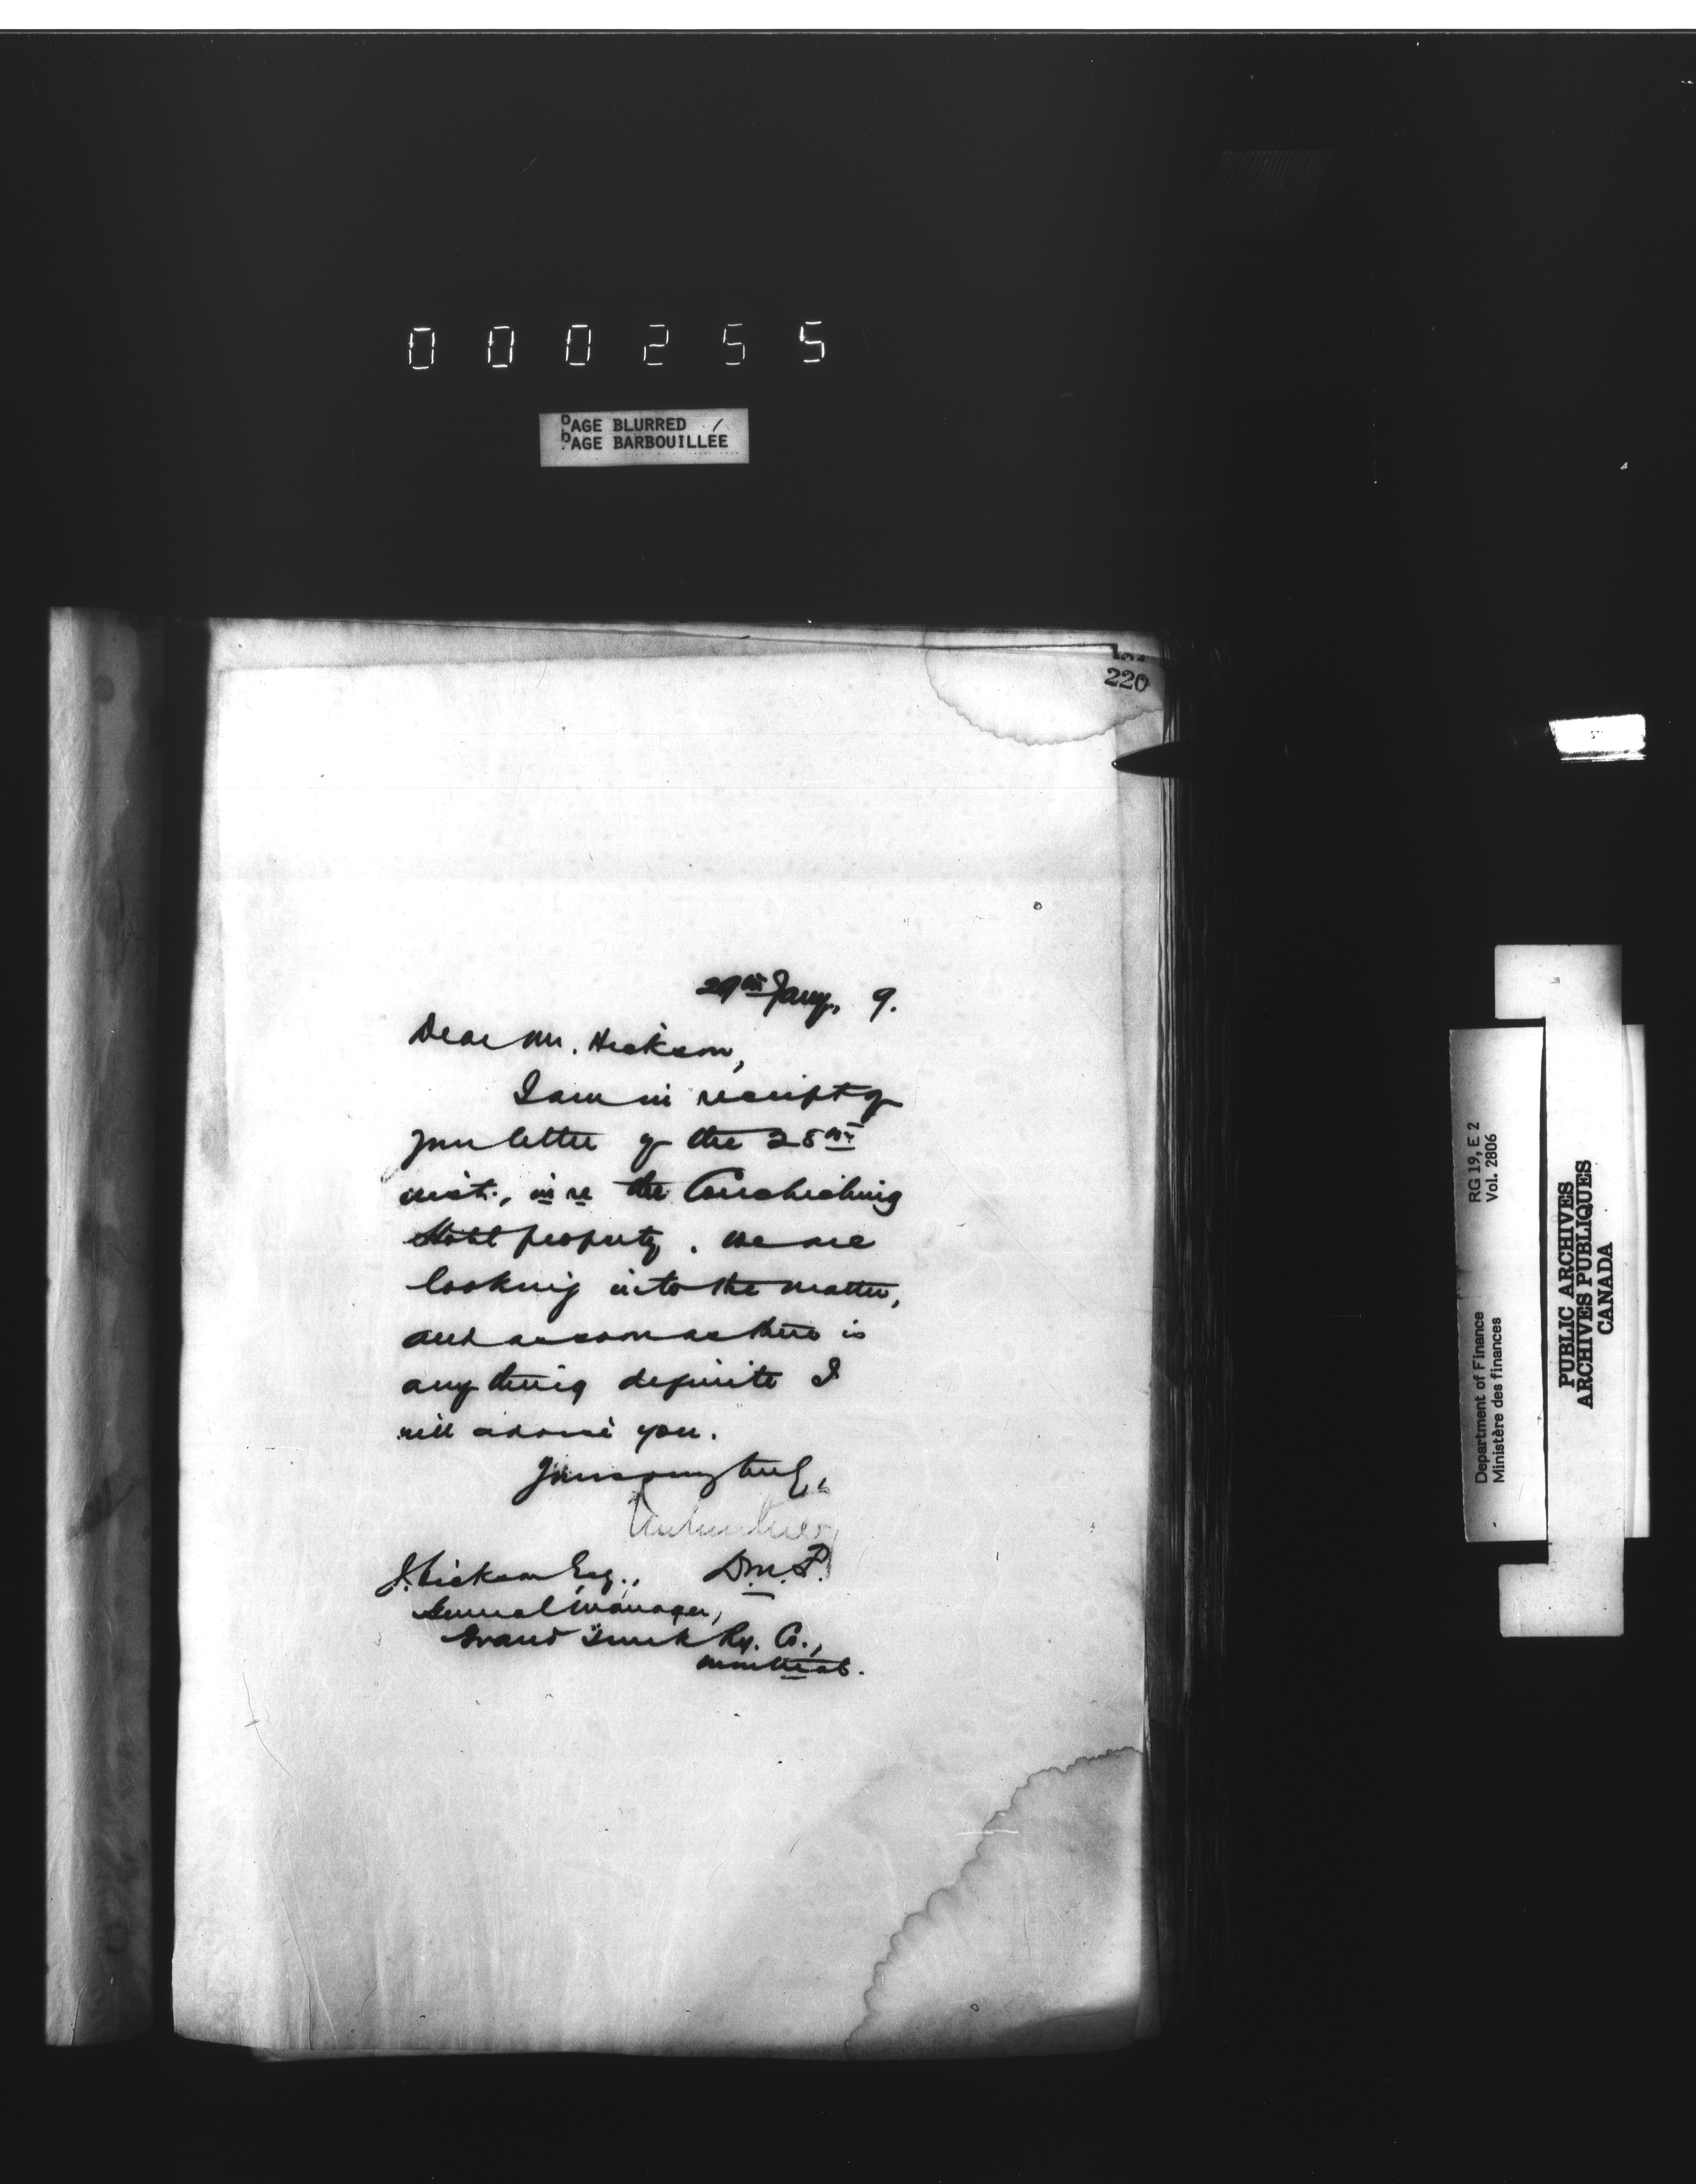 000255
PAGE BLURRED
PAGE BARBOUILLÉE
220
29th Jany, 9.
Dear Mr. Hickson,
I am in receipt of
your letter of the 28th
inst., in re the Couchiching
Hotel property. We are
looking into the matter,
and as soon as there is
anything definite I
will advise you.
Yours very truly,
D.M.F.
J. Hickson Esq.,
General Manager,
Grand Trunk Ry. Co.,
Montreal.
RG 19, E 2
Vol. 2806
Department of Finance
Ministère des finances
PUBLIC ARCHIVES
ARCHIVES PUBLIQUES
CANADA